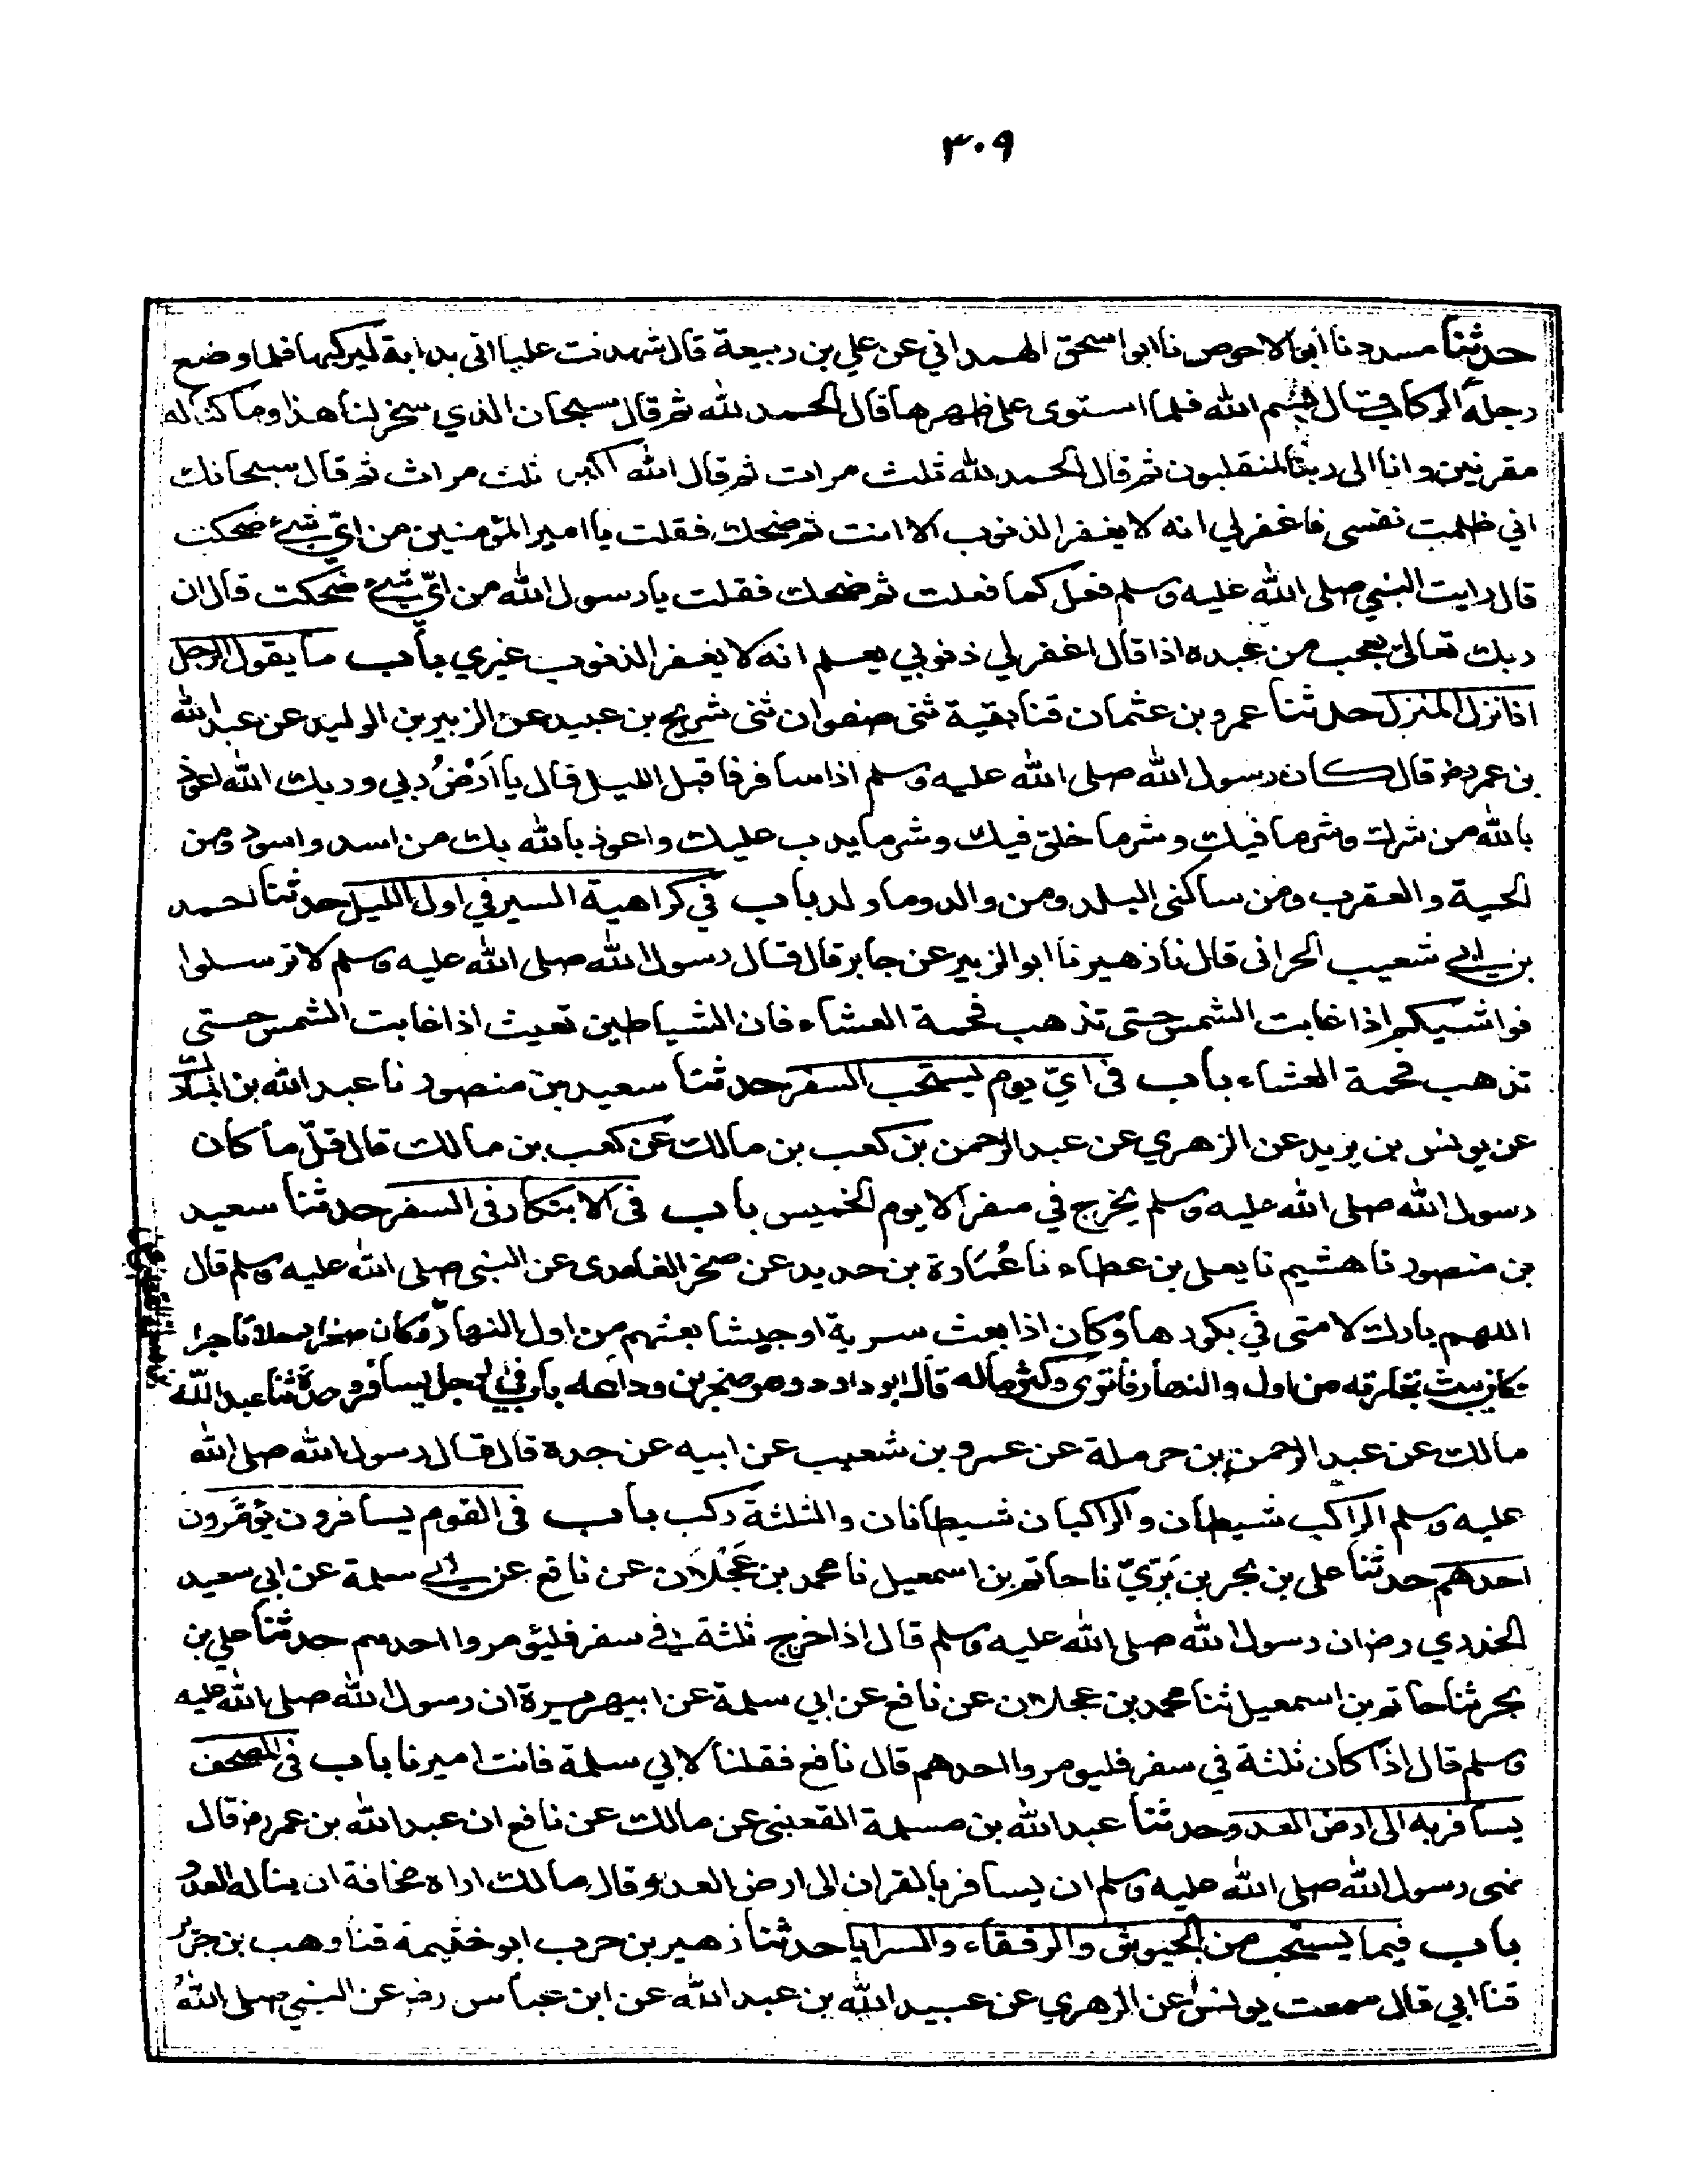 ٣٠٩
حدثنا مسدد نا ابو الاحوص نا ابو اسحق الهمداني عن علي بن ربيعة قال شهدت عليا اتى بدابة ليركبها فلما وضع
رجله في الركاب قال بسم الله فلما استوى على ظهرها قال الحمد لله ثم قال سبحان الذي سخر لنا هذا وما كنا له
مقرنين وانا الى ربنا لمنقلبون ثم قال الحمد لله ثلث مرات ثم قال الله اكبر ثلث مرات ثم قال سبحانك
اني ظلمت نفسى فاغفر لي انه لا يغفر الذنوب الا انت ثم ضحك فقلت يا امير المؤمنين من ايّ شيء ضحكت
قال رايت النبي صلى الله عليه وسلم فعل كما فعلت ثم ضحك فقلت يا رسول الله من ايّ شيء ضحكت قال ان
ربك تعالى يعجب من عبده اذا قال اغفر لي ذنوبي يعلم انه لا يغفر الذنوب غيري باب ما يقول الرجل
اذا نزل المنزل حدثنا عمرو بن عثمان قنا بقية ثنى صفوان ثنى شريح بن عبيد عن الزبير بن الوليد عن عبد الله
بن عمر رض قال كان رسول الله صلى الله عليه وسلم اذا سافر فاقبل الليل قال يا ارْضُ ربي وربك الله اعوذ
بالله من شرك وشر ما فيك وشر ما خلق فيك وشر ما يدب عليك واعوذ بالله بك من اسد واسود ومن
الحية والعقرب ومن ساكنى البلد ومن والد وما ولد باب في كراهية السير في اول الليل حدثنا احمد
بن ابي شعيب الحرانى قال نا زهير نا ابو الزبير عن جابر قال قال رسول الله صلى الله عليه وسلم لا ترسلوا
فواشيكم اذا غابت الشمس حتى تذهب فحمة العشاء فان الشياطين تعيث اذا غابت الشمس حتى
تذهب فحمة العشاء باب فى ايّ يوم يستحب السفر حدثنا سعيد بن منصور نا عبد الله بن المبارك
عن يونس بن يزيد عن الزهري عن عبد الرحمن بن كعب بن مالك عن كعب بن مالك قال قلّ ما كان
رسول الله صلى الله عليه وسلم يخرج في سفر الا يوم الخميس باب فى الابتكار فى السفر حدثنا سعيد
بن منصور نا هشيم نا يعلى بن عطاء نا عُمَارة بن حديد عن صخر الغامدى عن النبى صلى الله عليه وسلم قال
اللهم بارك لامتى في بكورها وكان اذا بعث سرية او جيشا بعثهم من اول النهار وكان صخر رجلا تاجرا
فكان يبعث تجارته من اول النهار فاثرى وكثر ماله قال ابو داود وهو صخر بن وداعه باب في الرجل يسافر وحده حدثنا عبد الله
مالك عن عبد الرحمن بن حرملة عن عمرو بن شعيب عن ابيه عن جده قال قال رسول الله صلى الله
عليه وسلم الراكب شيطان والراكبان شيطانان والثلثة ركب باب فى القوم يسافرون يؤمّرون
احدهم حدثنا على بن بحر بن بَرّيّ نا حاتم بن اسمعيل نا محمد بن عَجْلان عن نافع عن ابي سلمة عن ابي سعيد
الخدري رض ان رسول الله صلى الله عليه وسلم قال اذا خرج ثلثة في سفر فليؤمروا احدهم حدثنا علي بن
بحر ثنا حاتم بن اسمعيل ثنا محمد بن عجلان عن نافع عن ابي سلمة عن ابي هريرة ان رسول الله صلى الله عليه
وسلم قال اذا كان ثلثة في سفر فليومروا احدهم قال نافع فقلنا لابي سلمة فانت اميرنا باب فى المصحف
يسافر به الى ارض العدو حدثنا عبد الله بن مسلمة القعنبى عن مالك عن نافع ان عبد الله بن عمر رض قال
نهى رسول الله صلى الله عليه وسلم ان يسافر بالقران الى ارض العدو قال مالك اراه مخافة ان يناله العدو
باب فيما يستحب من الجيوش والرفقاء والسرايا حدثنا زهير بن حرب ابو خثيمة قنا وهب بن جرير
قنا ابي قال سمعت يونس عن الزهري عن عبيد الله بن عبد الله عن ابن عباس رض عن النبي صلى الله